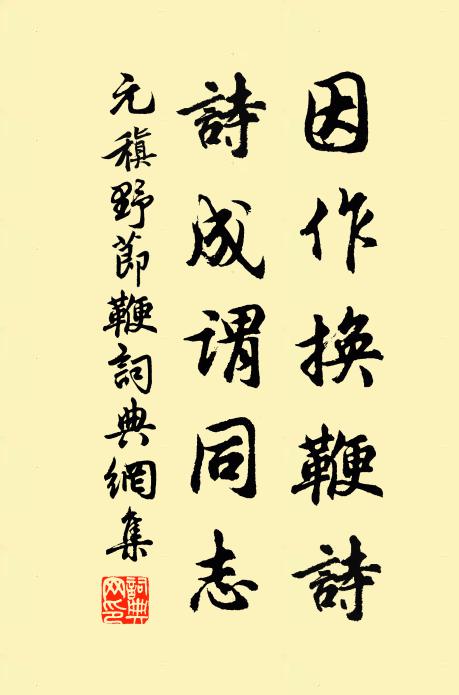 因作換鞭詩
詩成謂同志
元稹野節鞭詞典網集
詞典网印